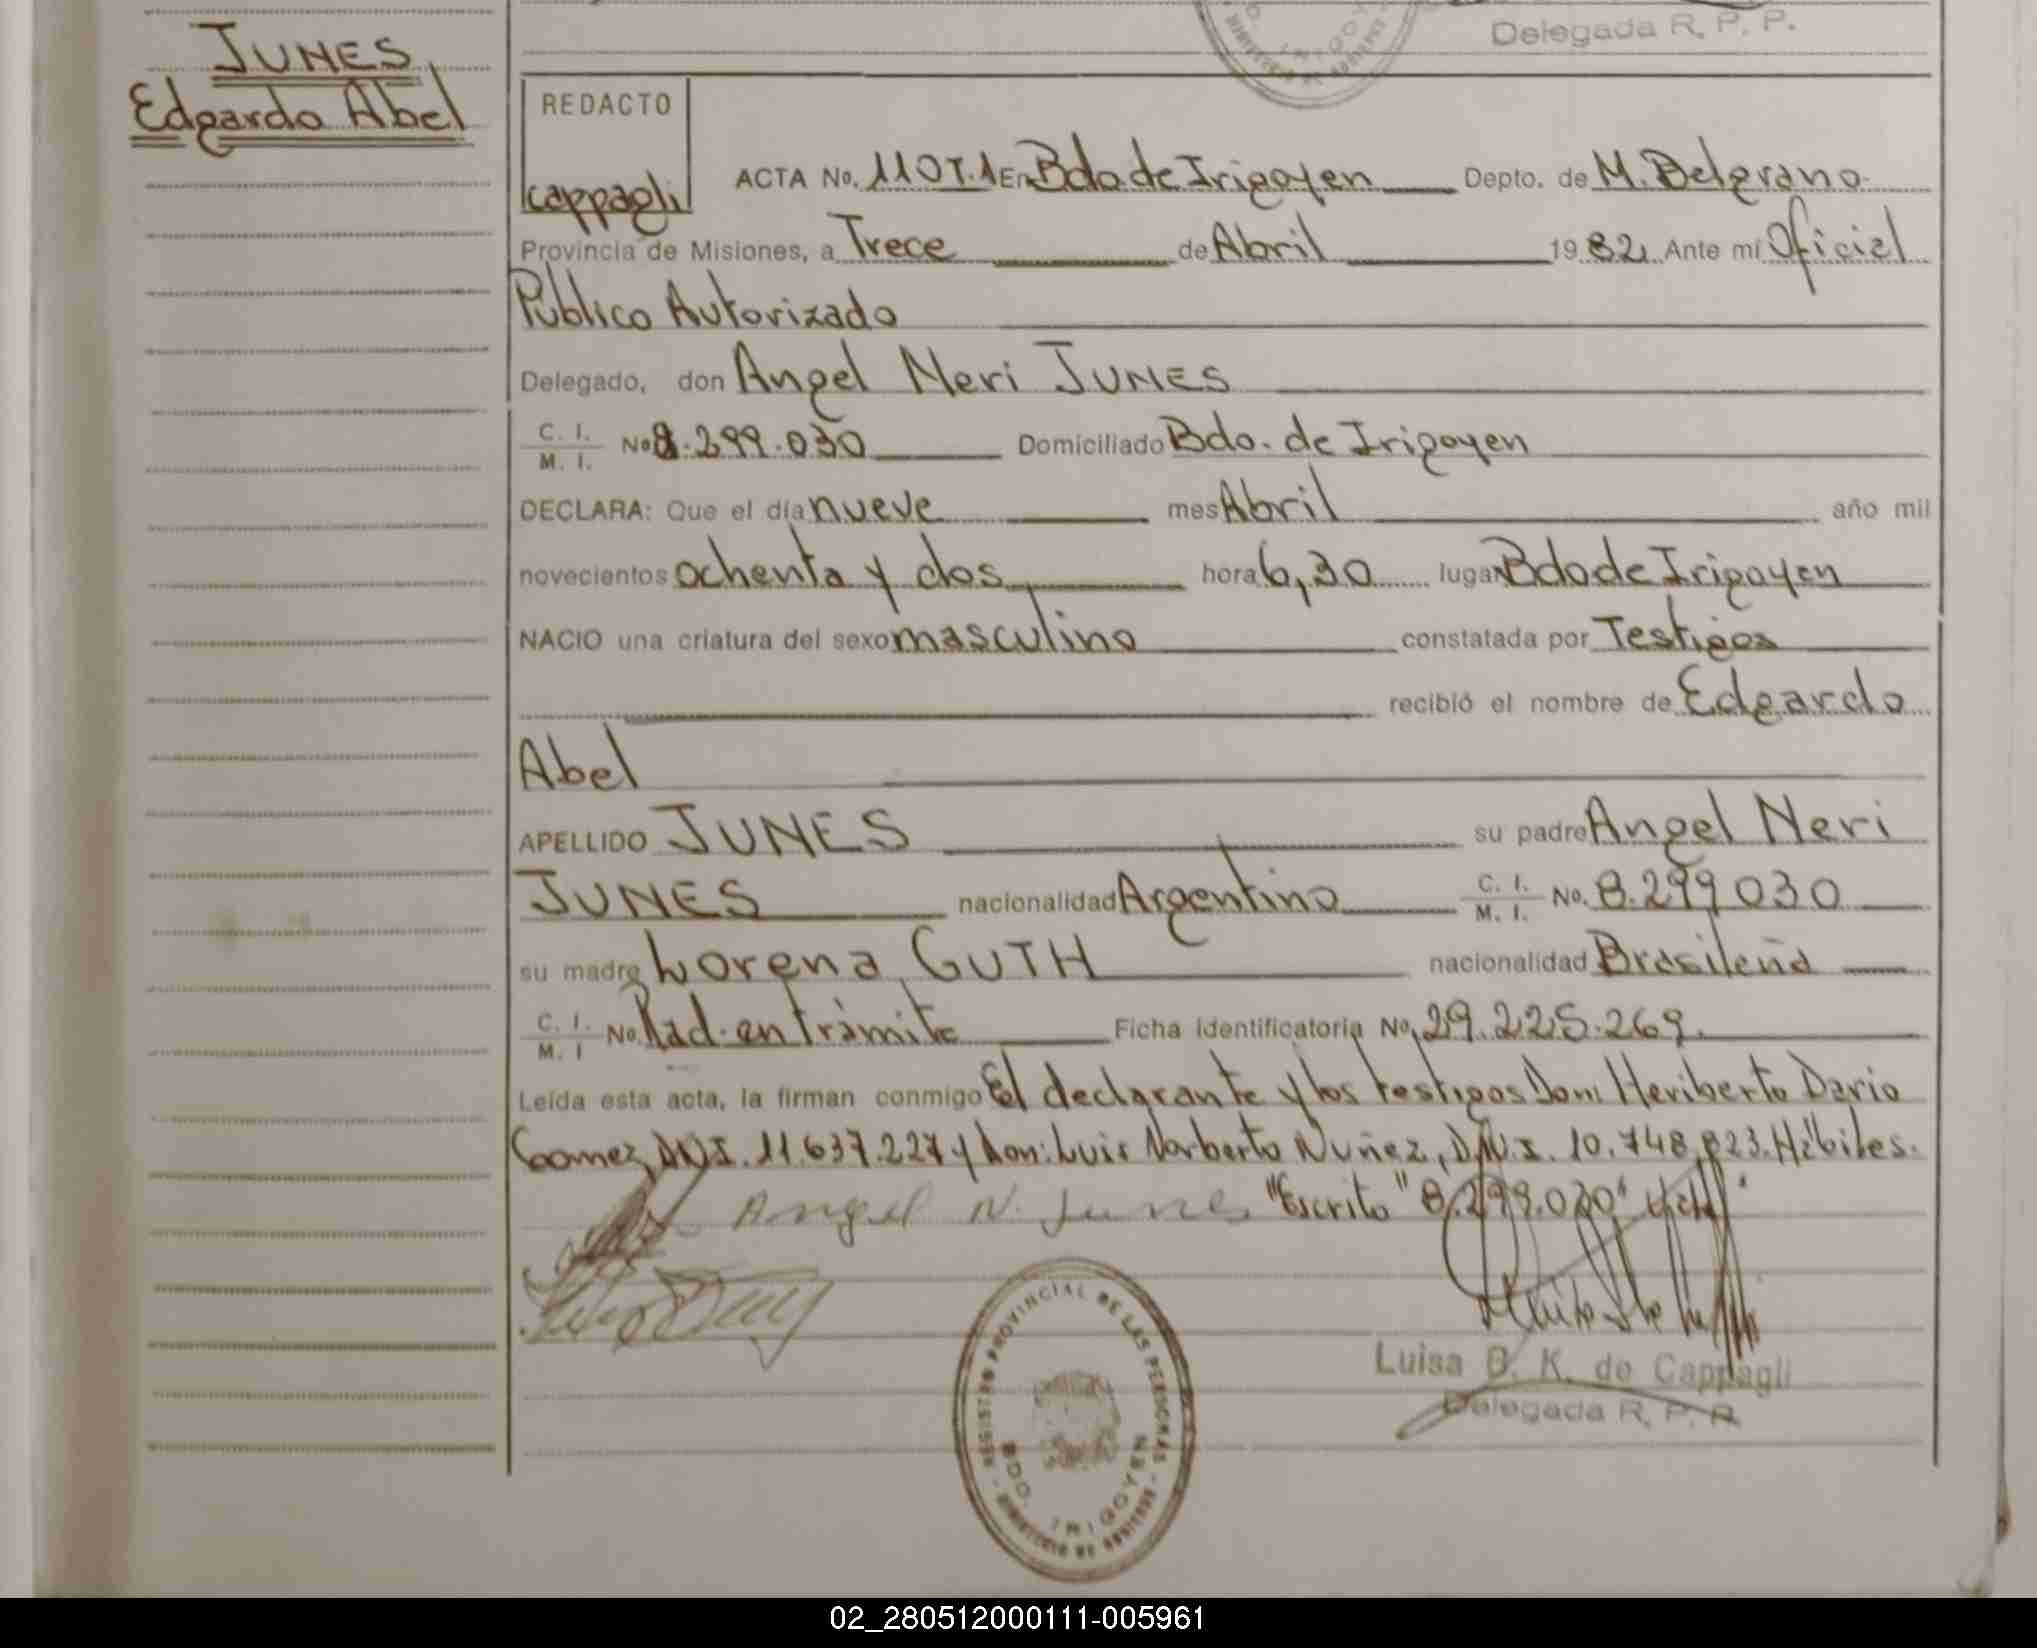 Delegada R. P. P.
JUNES
Edgardo Abel
REDACTO
Cappagli
ACTA No. 110 T.1 En Bdo de Irigoyen Depto. de M. Belgrano
Provincia de Misiones, a Trece de Abril 1982 Ante mí Oficial
Público Autorizado
Delegado, don Angel Neri JUNES
C. I. M. I. No 8.299.030 Domiciliado Bdo. de Irigoyen
DECLARA: Que el día nueve mes Abril año mil
novecientos ochenta y dos hora 6,30 lugar Bdo de Irigoyen
NACIO una criatura del sexo masculino constatada por Testigos
recibió el nombre de Edgardo
Abel
APELLIDO JUNES su padre Angel Neri
JUNES nacionalidad Argentino C. I. M. I. No. 8.299030
su madre Lorena GUTH nacionalidad Brasileña
C. I. M. I No. Rad. en trámite Ficha identificatoria No. 29.225.269.
Leída esta acta, la firman conmigo El declarante y los testigos Don: Heriberto Dario
Gomez, DNI. 11.637.227 y don: Luis Norberto Nuñez, D.N.I. 10.748.823. Hábiles.
Angel N. Junes "Escrito" 8.299.030"
REGISTRO PROVINCIAL DE LAS PERSONAS
BDO. IRIGOYEN
MINISTERIO DE GOBIERNO
Luisa B. K. de Cappagli
Delegada R. P. P.
02_280512000111-005961